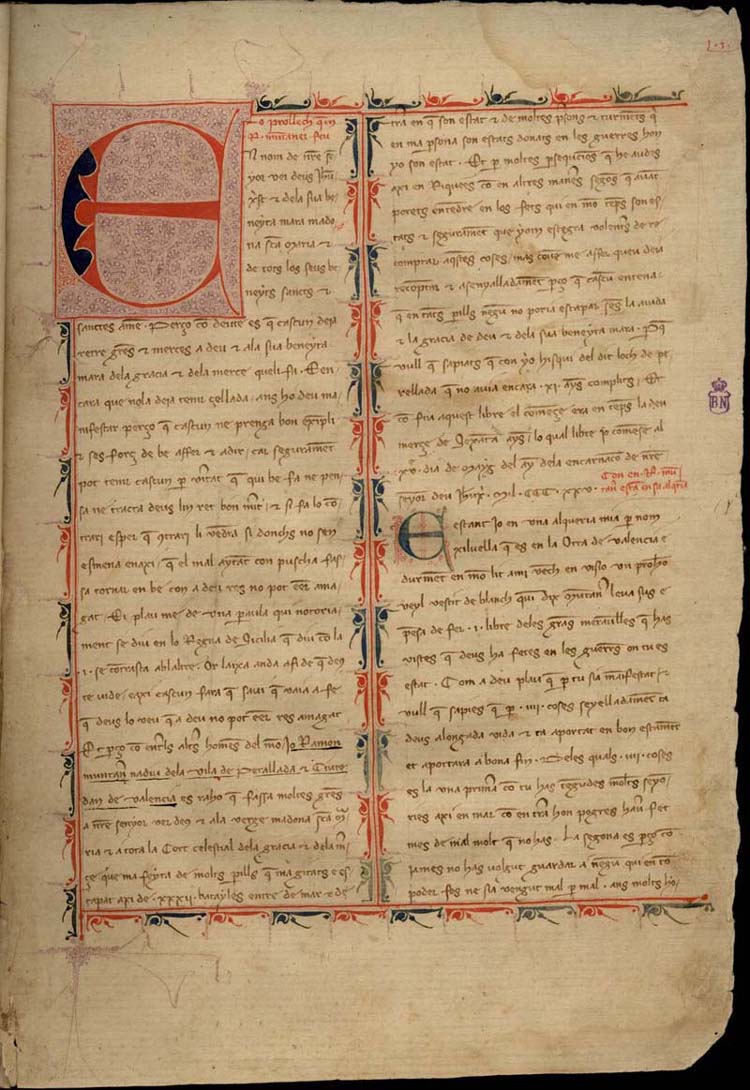 .1.
Lo prollech q̄ en
R. mūtaner feu
E
N nom de nr̄e s̄e
yor ver deus Jhū
xp̄st & dela sua be
neyta mara mado
na sc̄ta Maria &
de tots los seus be
neyts sancts &
sanctes amē. Perço cō deute es q̄ cascun deja
retre gr̄es & merces a deu & ala sua beneyta
mara dela gracia & dela merce queli fa. E en
cara que nola deja tenir çellada, ans ho deu ma
nifestar perço q̄ cascun ne prenga bon exēpli
& ses forç de be affer & a dir, car seguramēt
pot tenir cascun p̄ v̄itat q̄ qui be fa ne pen
sa ne tracta deus lin ret bon m̄it, & si fa lo cō
trari
esmena enaxi, q̄ el mal aytāt con puscha fas
sa tornar en be con a deu res no pot eēr ama
gat. E plau me de una paula qui notoria
ment se diu en lo Regne de Sicilia q̄ diu cō la
.i. se contrasta ab laltre. Or layxa anda a fi de q̄ deu
te vide, e axi cascun fara q̄ savi q̄ vaia a fe
q̄ deus lo veu q̄ a deu no pot eēr res amagat
Et p̄ço cō ent̄ls alt̄s homēs del mō, Jo Ramon
muntan̄ nadiu dela vila de Perallada & Ciuta
dan de valencia es raho q̄ fassa moltes gr̄es
a nr̄e senyor ver deu & ala verge madona sc̄ta m̄a
ria & a tota la Cort celestial dela gracia & dela m̄
çe que ma feyta de molts pills q̄ ma gitats e es
capat axi de .xxxii. batayles entre de mar & de
t̄ra en q̄ son estat & de moltes p̄sons & turmēts q̄
en ma p̄sona son estats donats en les guerres hon
yo son estat. Et p̄ moltes p̄sequcios q̄ he audes
axi en Riquees cō en altres man̄es segōs q̄ auāt
porets entēdre en los fets qui en mō tēps son es
tats & seguramēt que yom estegra volentēs de re
comptar aqstes coses, mas coue me affer queu deia
recomptar & asenyalladamēt p̄ço q̄ cascū entena
q̄ en tāts pills negu no poria escapar sēs la aiuda
& la gracia de deu & dela sua beneyta mara. P̄q̄
vull q̄ sapiats que con yo hisqui del dit loch de pe
rellada q̄ no auia encara .xi. anys complits, Et
cō fiu aquest libre el comēçe era en tēps la deu
merçe de Lexāta anys, lo qual libre yo comēse al
.xv. dia de Mayg del any dela encarnaco de nr̄e
seyor deu Jhūx̄. Mil. CCC. xxv.
Con en. R. mū
tan̄ estāt en sa alqria
E
estant Jo en una alqueria mia p̄ nom
xiluella que es en la Orta de valencia e
durmēt en mō lit a mi vech en visio un prohō
veyl vestit de blanch qui dix Muntan̄ leva sus e
p̄esa de fer .i. libre deles grās meravilles q̄ has
vistes q̄ deus ha fetes en les guerres on tu es
estat. Com a deu plau q̄ p̄ tu sia manifestat, &
vull q̄ sapies q̄ p̄ .iiii. coses seyelladamēt ta
deus alongada vida & ta aportat en bon estamēt
et aportara a bona fin. Deles quals .iiii. coses
es la una primā co tu has tegudes molts seyo
ries axi en mar cō en t̄ra hon pogres hau̅ fet
mes de mal molt q̄ no has. La segona es p̄ço cō
james no has volgut guardar a negu qui en tō
poder fos ne sia vengut mal p̄ mal. ans molts ho
BN